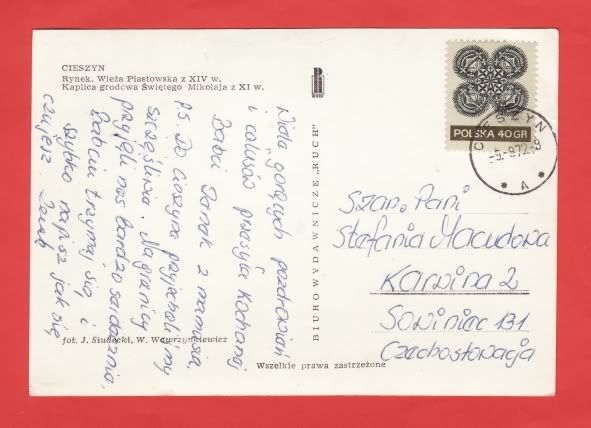 CIESZYN
Rynek. Wieża Piastowska z XIV w.
Kaplica grodowa Świętego Mikołaja z XI w.
RUCH
POLSKA 40 GR
CIESZYN
-9.-8.72.-8
A
Wiele gorących pozdrowień
i całusów przesyła Kochanej
Babci Darek z mamusią.
P.S. Do Cieszyna przyjechaliśmy
szczęśliwie. Na granicy
przyjęli nas bardzo serdecznie.
Babciu trzymaj się i
szybko napisz jak się
czujesz
BIURO WYDAWNICZE „RUCH"
Szan. Pani
Stefania Macudowa
Karwina 2
Sowiniec 131
Czechosłowacja
fot. J. Siudecki, W. Wawrzynkiewicz
Wszelkie prawa zastrzeżone